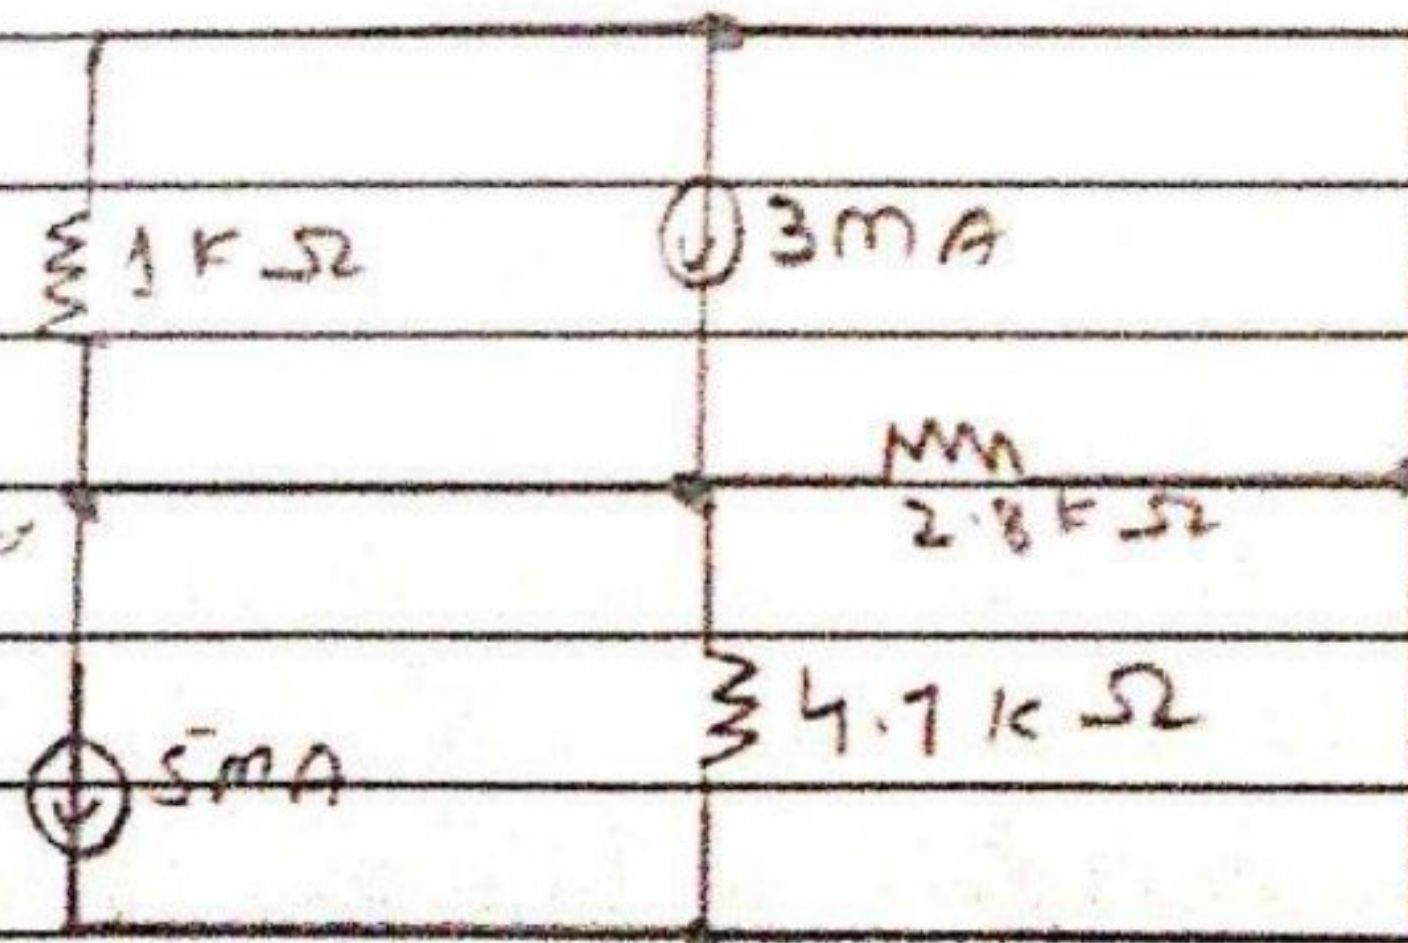 1 K Ω
3 m A
2.8 k Ω
4.7 k Ω
5 m A